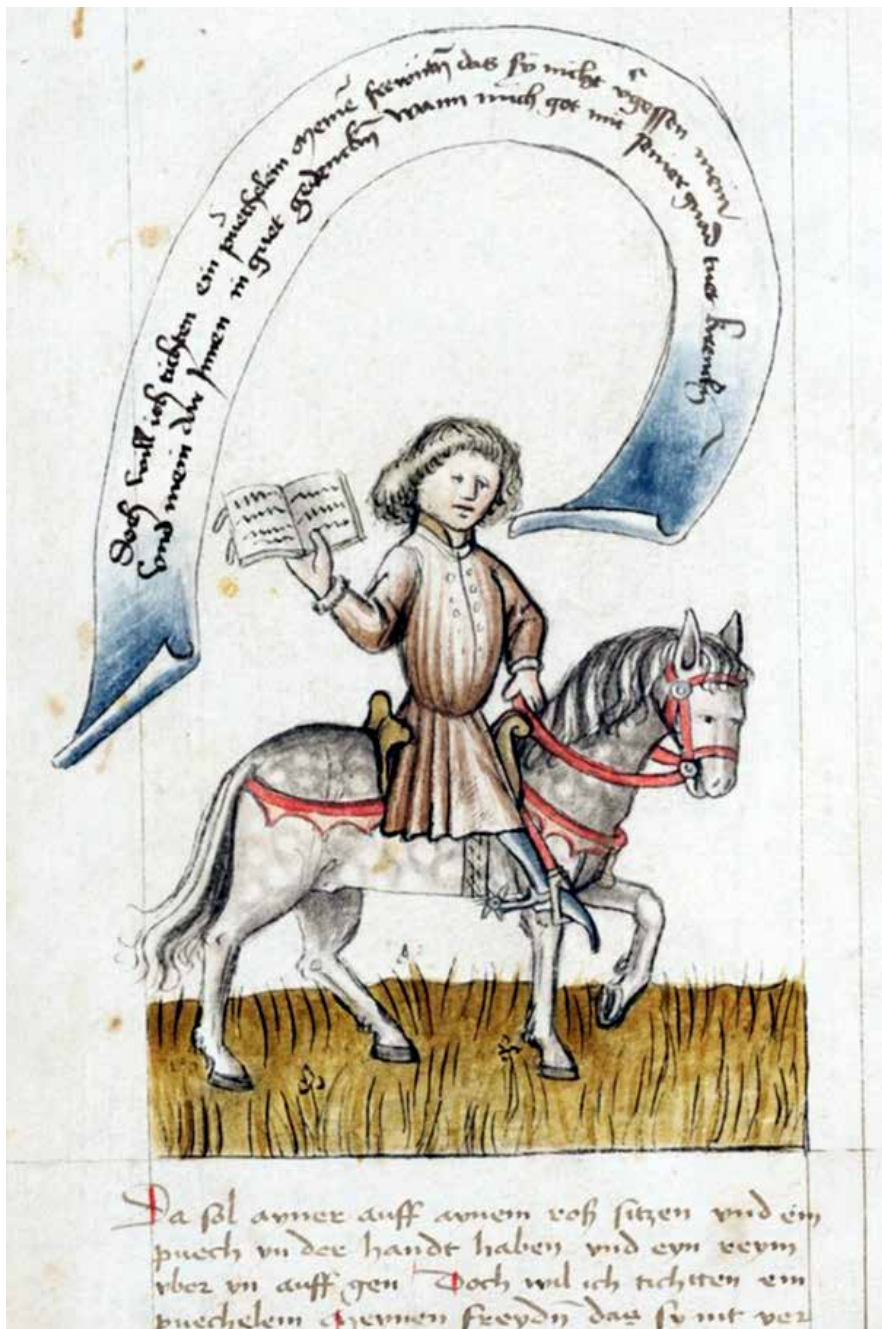 Doch will ich tichten ein puechelein meinē frewntn̄ das sy nicht v̄gessen mein
vnd mein dar Innen in guet gedenckn̄ Wann mich got mit seiner gnad tuet
Da sol ayner auff aynem roß sitzen vnd ein
puech yn der handt haben vnd eyn reym
vber yn auff gen Doch wil ich tichtten ein
puechelein meynen freydn̄ das sy nit ver